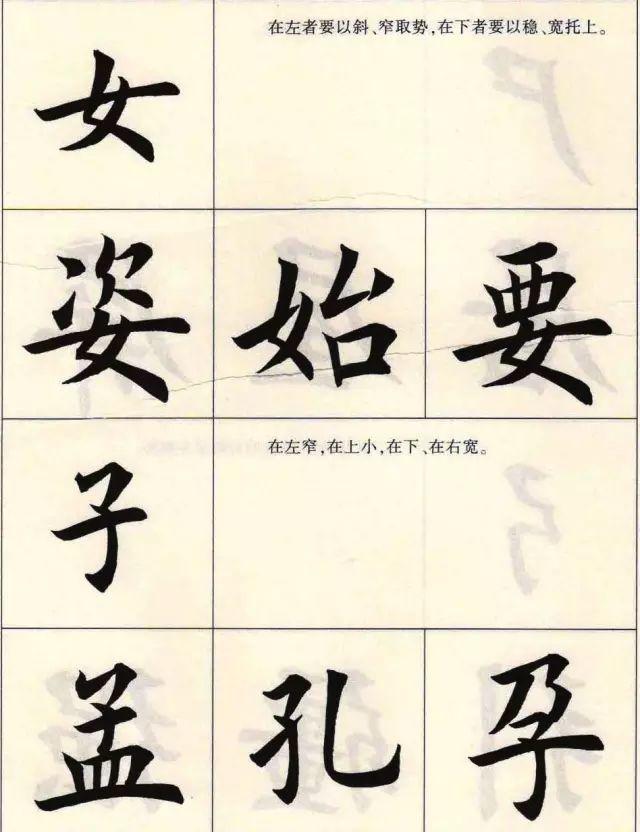 在左者要以斜、窄取势，在下者要以稳、宽托上。
女
姿 始 要
在左窄，在上小，在下、在右宽。
子
孟 孔 孕